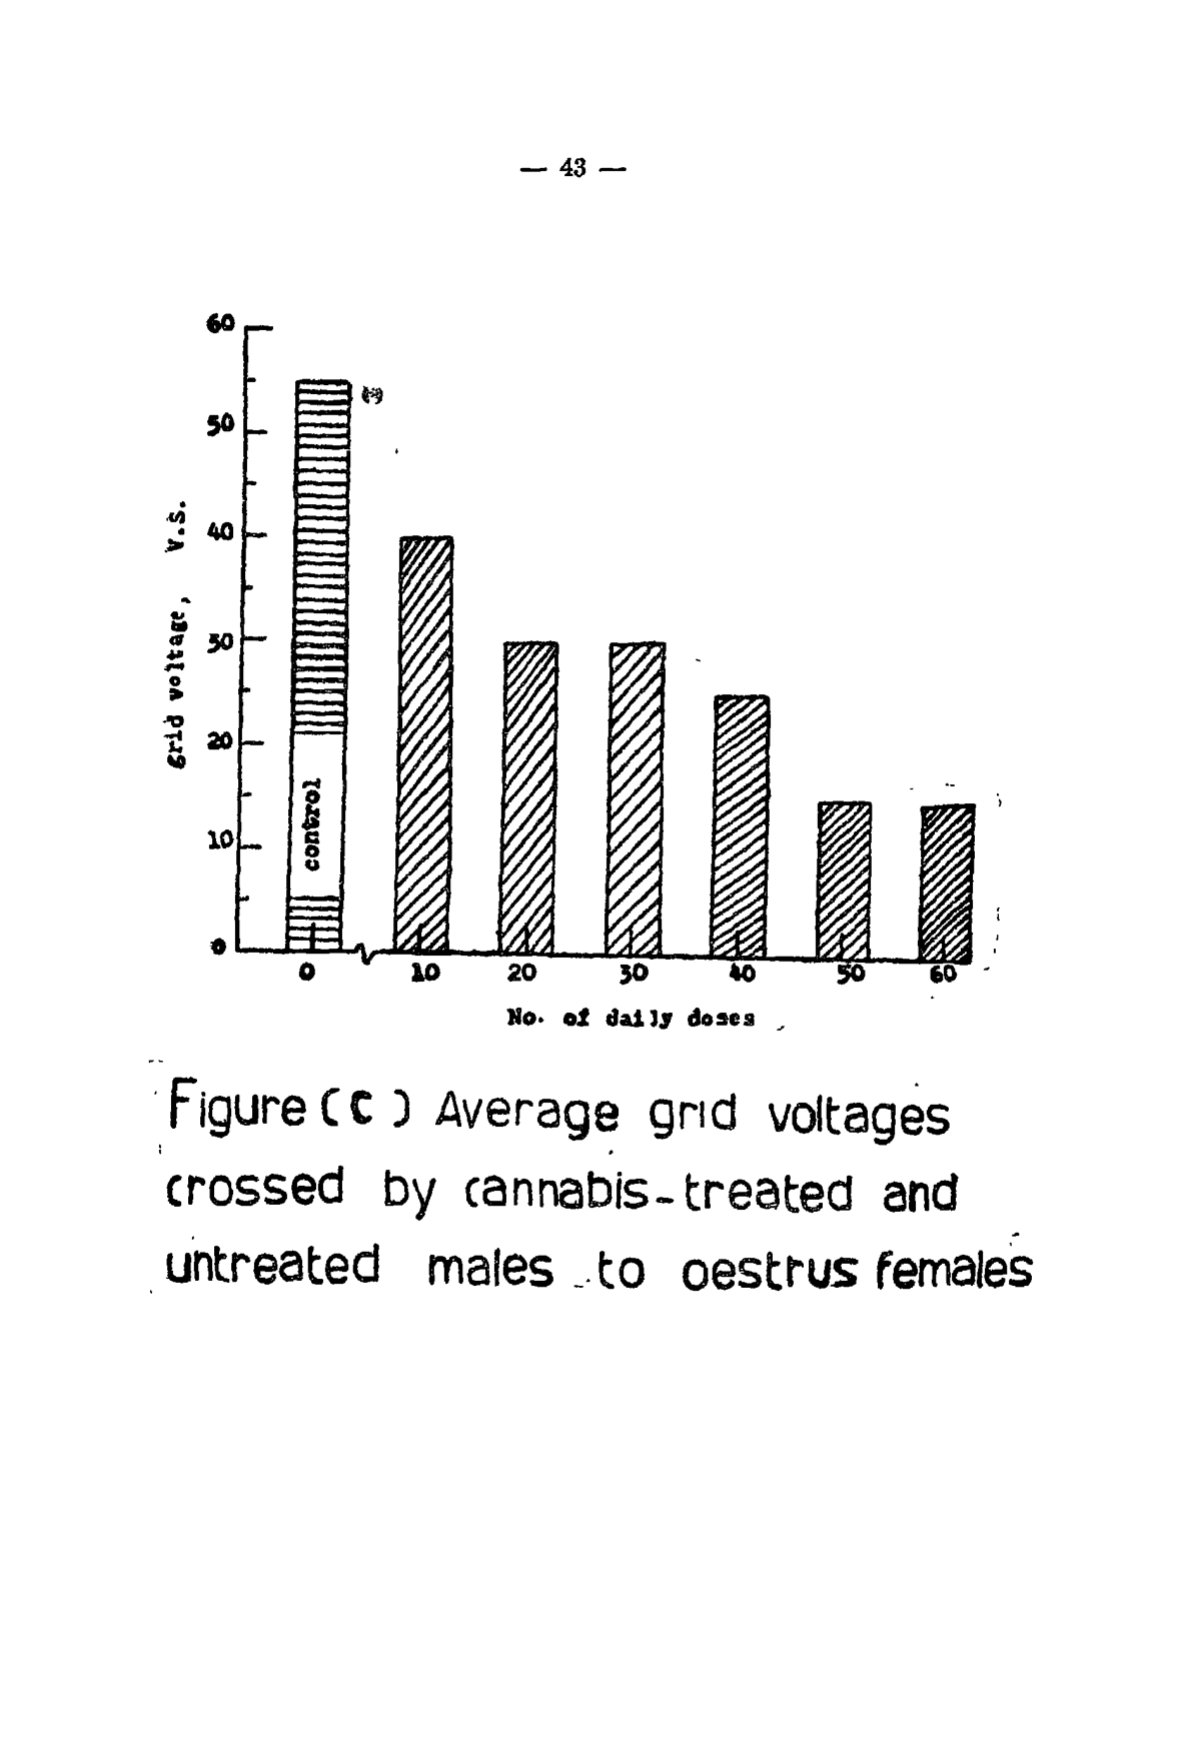 — 43 —
60
50
40
30
20
10
0
grid voltage, V.S.
control
0 10 20 30 40 50 60
No. of daily doses
Figure (C) Average grid voltages
crossed by cannabis-treated and
untreated males to oestrus females